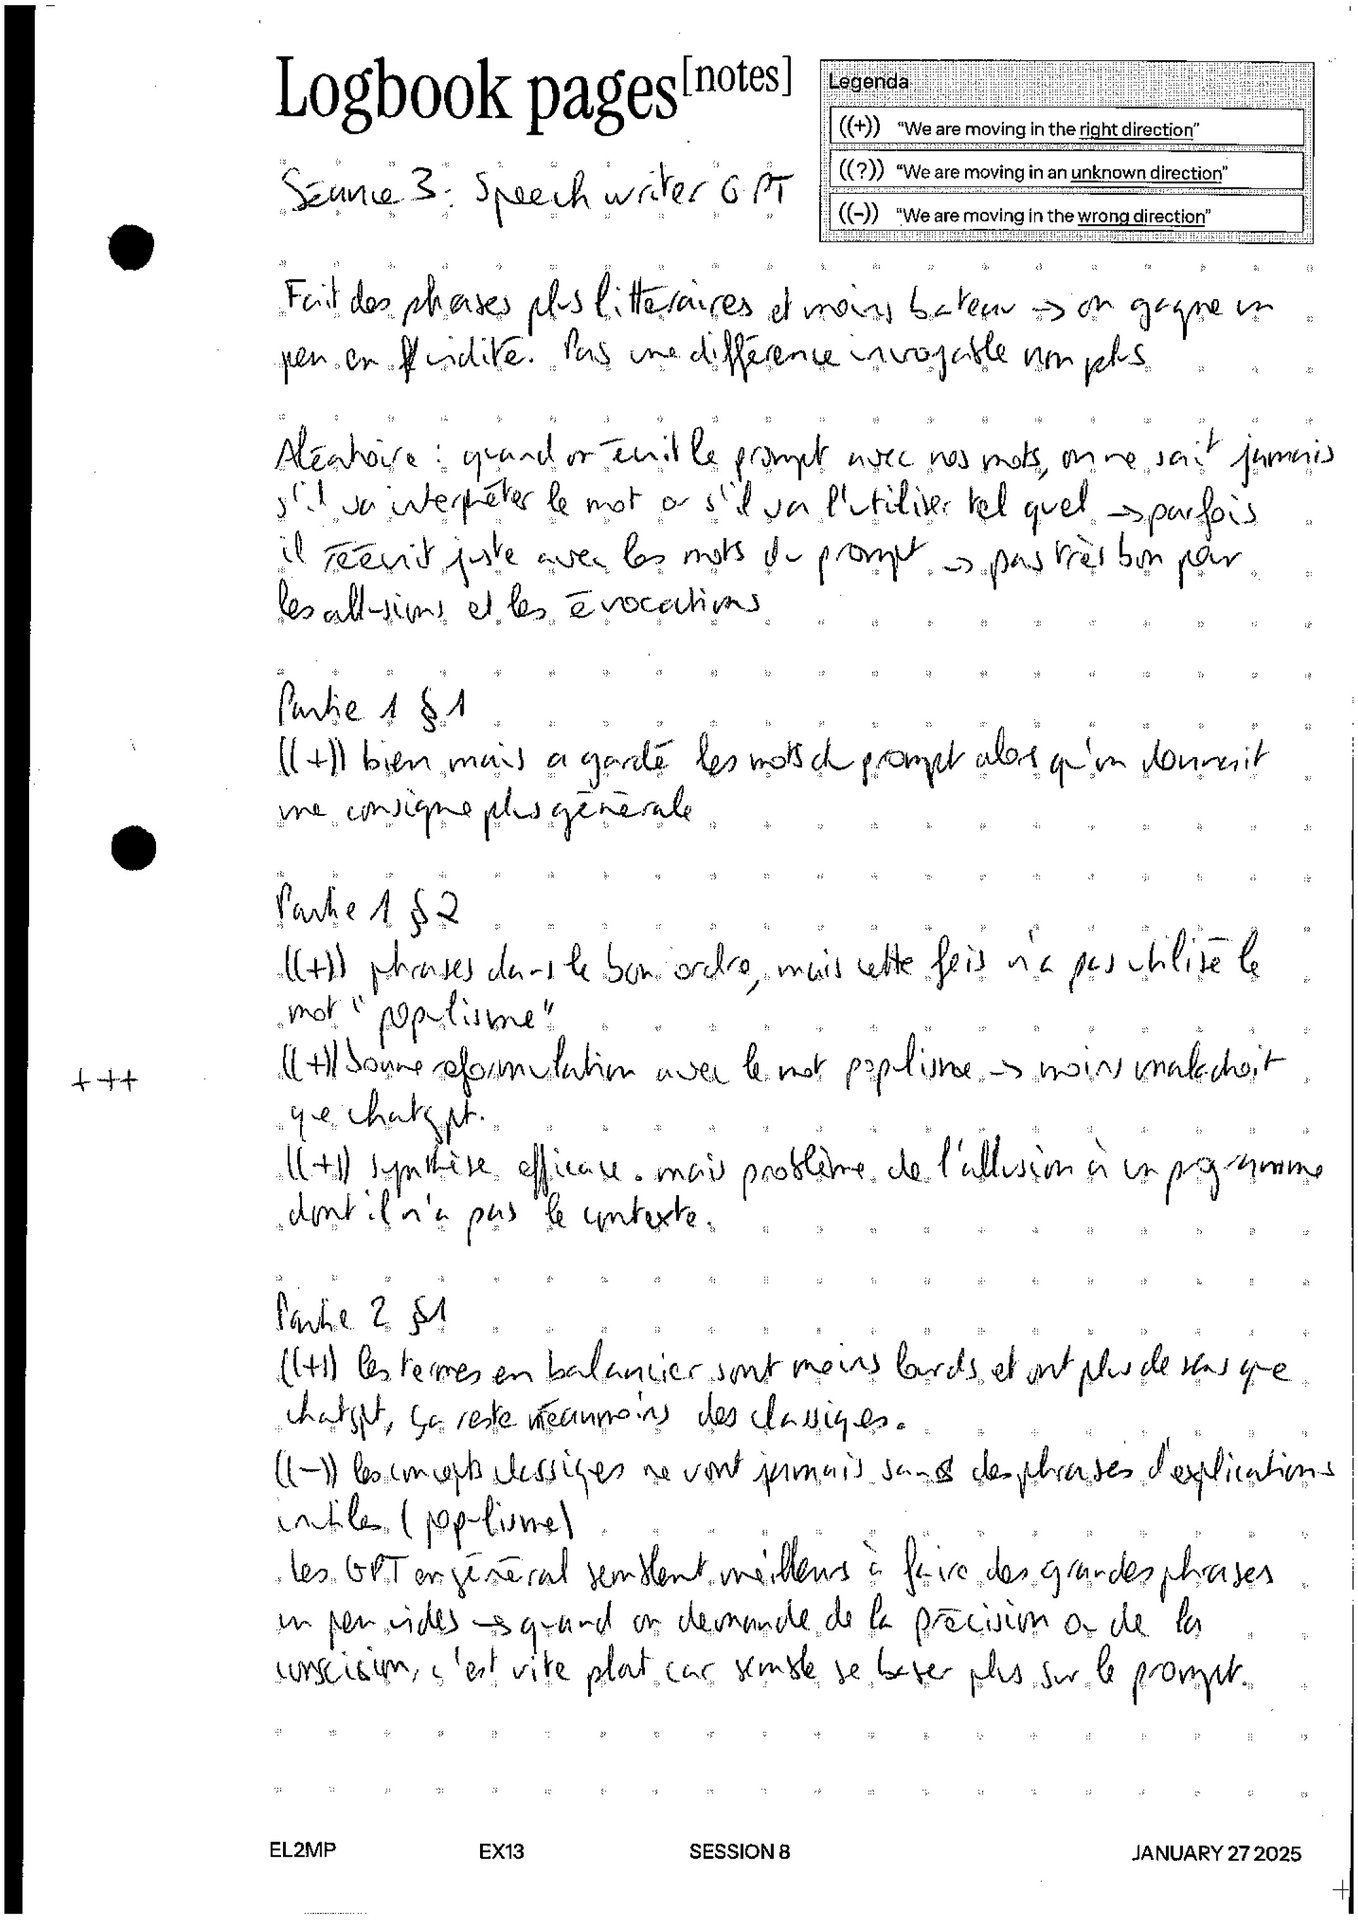 Logbook pages[notes]
Legenda
((+)) "We are moving in the right direction"
((?)) "We are moving in an unknown direction"
((-)) "We are moving in the wrong direction"
Séance 3 : Speech writer GPT
Fait des phrases plus littéraires et moins bateau -> on gagne un
peu en fluidité. Pas une différence incroyable non plus
Aléatoire : quand on écrit le prompt avec nos mots, on ne sait jamais
s'il va interpréter le mot ou s'il va l'utiliser tel quel -> parfois
il réécrit juste avec les mots du prompt -> pas très bon pour
les allusions et les évocations
Partie 1 §1
((+)) bien mais a gardé les mots du prompt alors qu'on donnait
une consigne plus générale
Partie 1 §2
((+)) phrases dans le bon ordre, mais cette fois n'a pas utilisé le
mot "populisme"
+++
((+)) bonne reformulation avec le mot populisme -> moins maladroit
que chatgpt.
((+)) synthèse efficace. mais problème de l'allusion à un programme
dont il n'a pas le contexte.
Partie 2 §1
((+)) les termes en balancier sont moins lourds et ont plus de sens que
chatgpt, ça reste néanmoins des classiques.
((-)) les concepts classiques ne vont jamais sans des phrases d'explications
inutiles (populisme)
Les GPT en général semblent meilleurs à faire des grandes phrases
un peu vides -> quand on demande de la précision ou de la
conscision, c'est vite plat car semble se baser plus sur le prompt.
EL2MP EX13 SESSION 8 JANUARY 27 2025